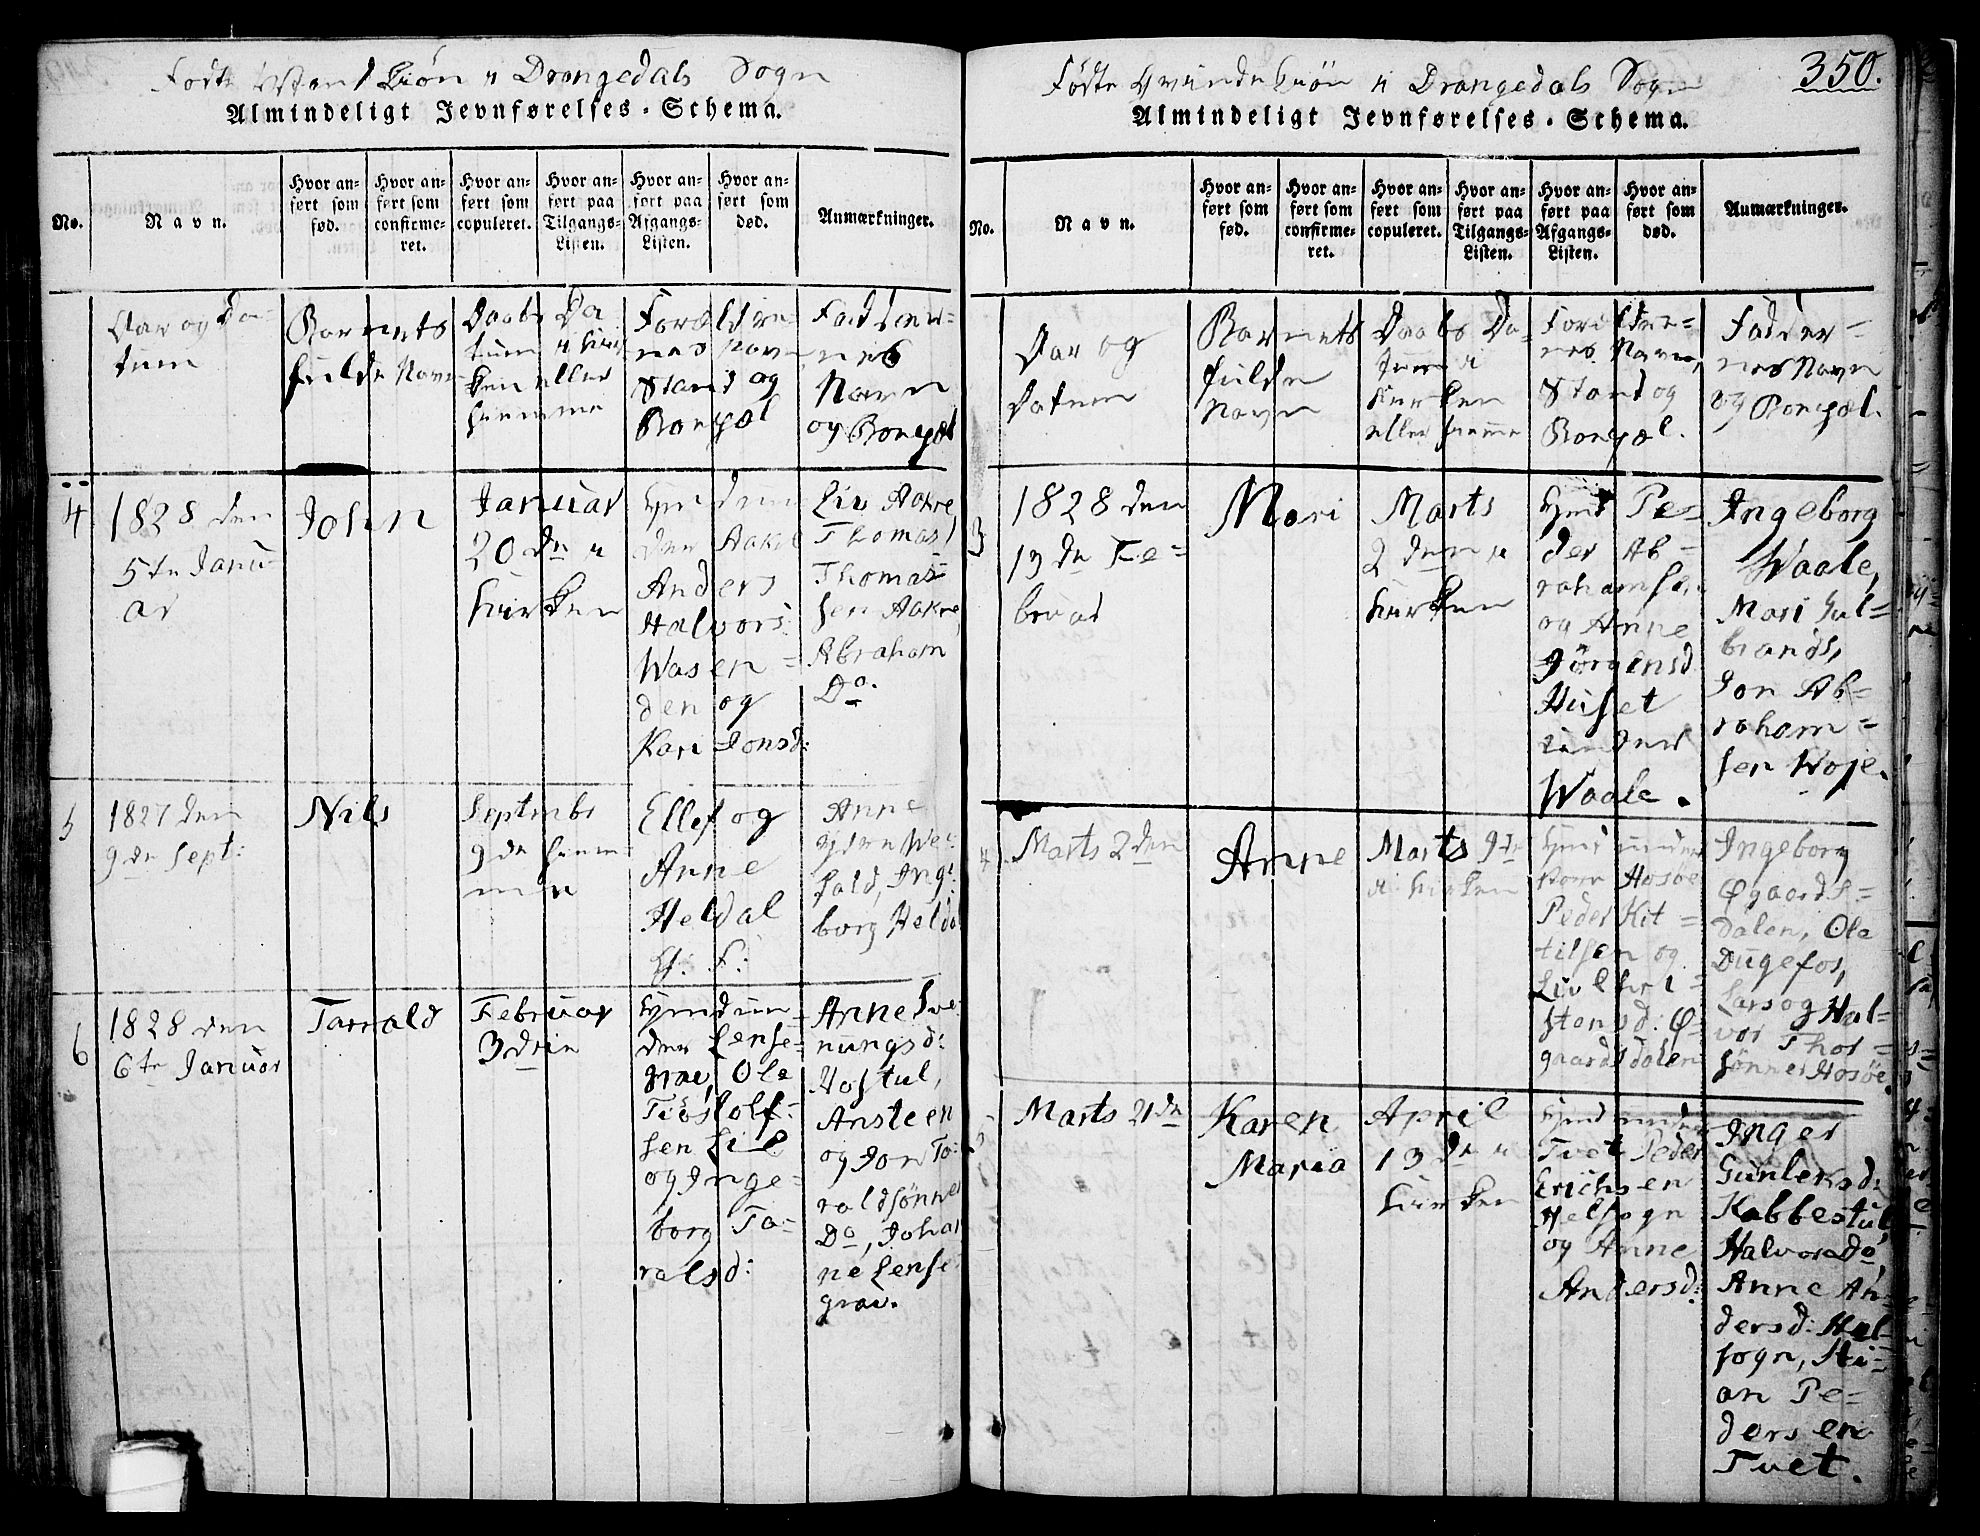 Fødte Mand Kiøn i Drangedals Sogn
Almindeligt Jevnførelses-Schema.
No.
Navn.
Hvor an-
ført som
fød.
Hvor an-
ført som
confirme-
ret.
Hvor an-
ført som
copuleret.
Hvor an-
ført paa
Tilgangs-
Listen.
Hvor an-
ført paa
Afgangs-
Listen.
Hvor an-
ført som
død.
Anmærkninger.
Aar og Da-
tum
Barnets
fulde Navn
Daabs Da
tum i Kir
ken eller
hiemme
Forældre-
nes Navn,
Stand og
Bopæl
Faddere-
nes
Navn
og Bopæl
4
1828 den
5te Janu-
ar
John
Januar
20de i
Kirken
der Aakre
Anders
Halvors:
Wasen=
den og
Kari Jonsd:
Liv Aakre
Thomas
Thomas=
sen Aakre
Abraham
Do.
5
1827 den
9de Sept:
Nils
Septmbr
9de hiem=
men
Ellef og
Anne
Heldal
Anne
fald, Inge
borg Helda
6
1828 den
6te Januar
Tarald
Februar
3die
der Lense=
grav, Ole
Tiøstolf=
sen Lie
og Inge=
borg Ta=
ralsd:
Anne Sve
nungsd:
Hostul,
Ansteen
og Jon To=
raldsønner
Do, Johan
ne Lense
grav.
350.
Fødte Qvinde Kiøn i Drangedals Sogn
Almindeligt Jevnførelses-Schema.
No.
Navn.
Hvor an-
ført som
fød.
Hvor an-
ført som
confirme-
ret.
Hvor an-
ført som
copuleret.
Hvor an-
ført paa
Tilgangs-
Listen.
Hvor an-
ført paa
Afgangs-
Listen.
Hvor an-
ført som
død.
Anmærkninger.
Aar og
Datum
Barnets
fulde
Navn
Daabs Da-
tum i
Kirken
eller hiemme
Forældre=
nes Navn,
Stand og
Bopæl.
Fadder=
nes Navn
og Bopæl.
3
1828 den
13de Fe=
bruar
Mari
Marts
2den i
Kirken
Hmd Pe=
der Ab=
rahamse,
og Anne
Jörgensd
Huset
under
Waale.
Ingeborg
Waale,
Mari Gul=
brands,
Jon Ab=
raham=
sen Woje.
4
Marts 2den
Anne
Marts 9de
i Kirken
Hmd under
Hosøe
Peder Kit=
tilsen og
Liv Chri=
stensd: Ø=
gaardsdalen
Ingeborg
Øgaards=
dalen, Ole
Dugefos,
Lars og Hal=
vor Thor=
sønner Hosøe
5
Marts 21de
Karen
Maria
April
13de i
Kirken
Hmd under
Tvet Peder
Erichsen
Helsogn
og Anne
Andersd:
Inger
Gunleksd:
Kabbestul
Halvor Do,
Anne An=
dersd: Hel=
sogn, Sti=
an Pe=
dersen
Tvet.